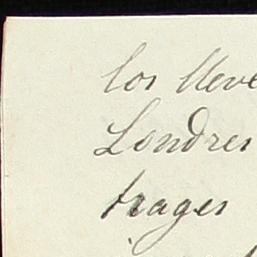 los lleve
Londres
trages